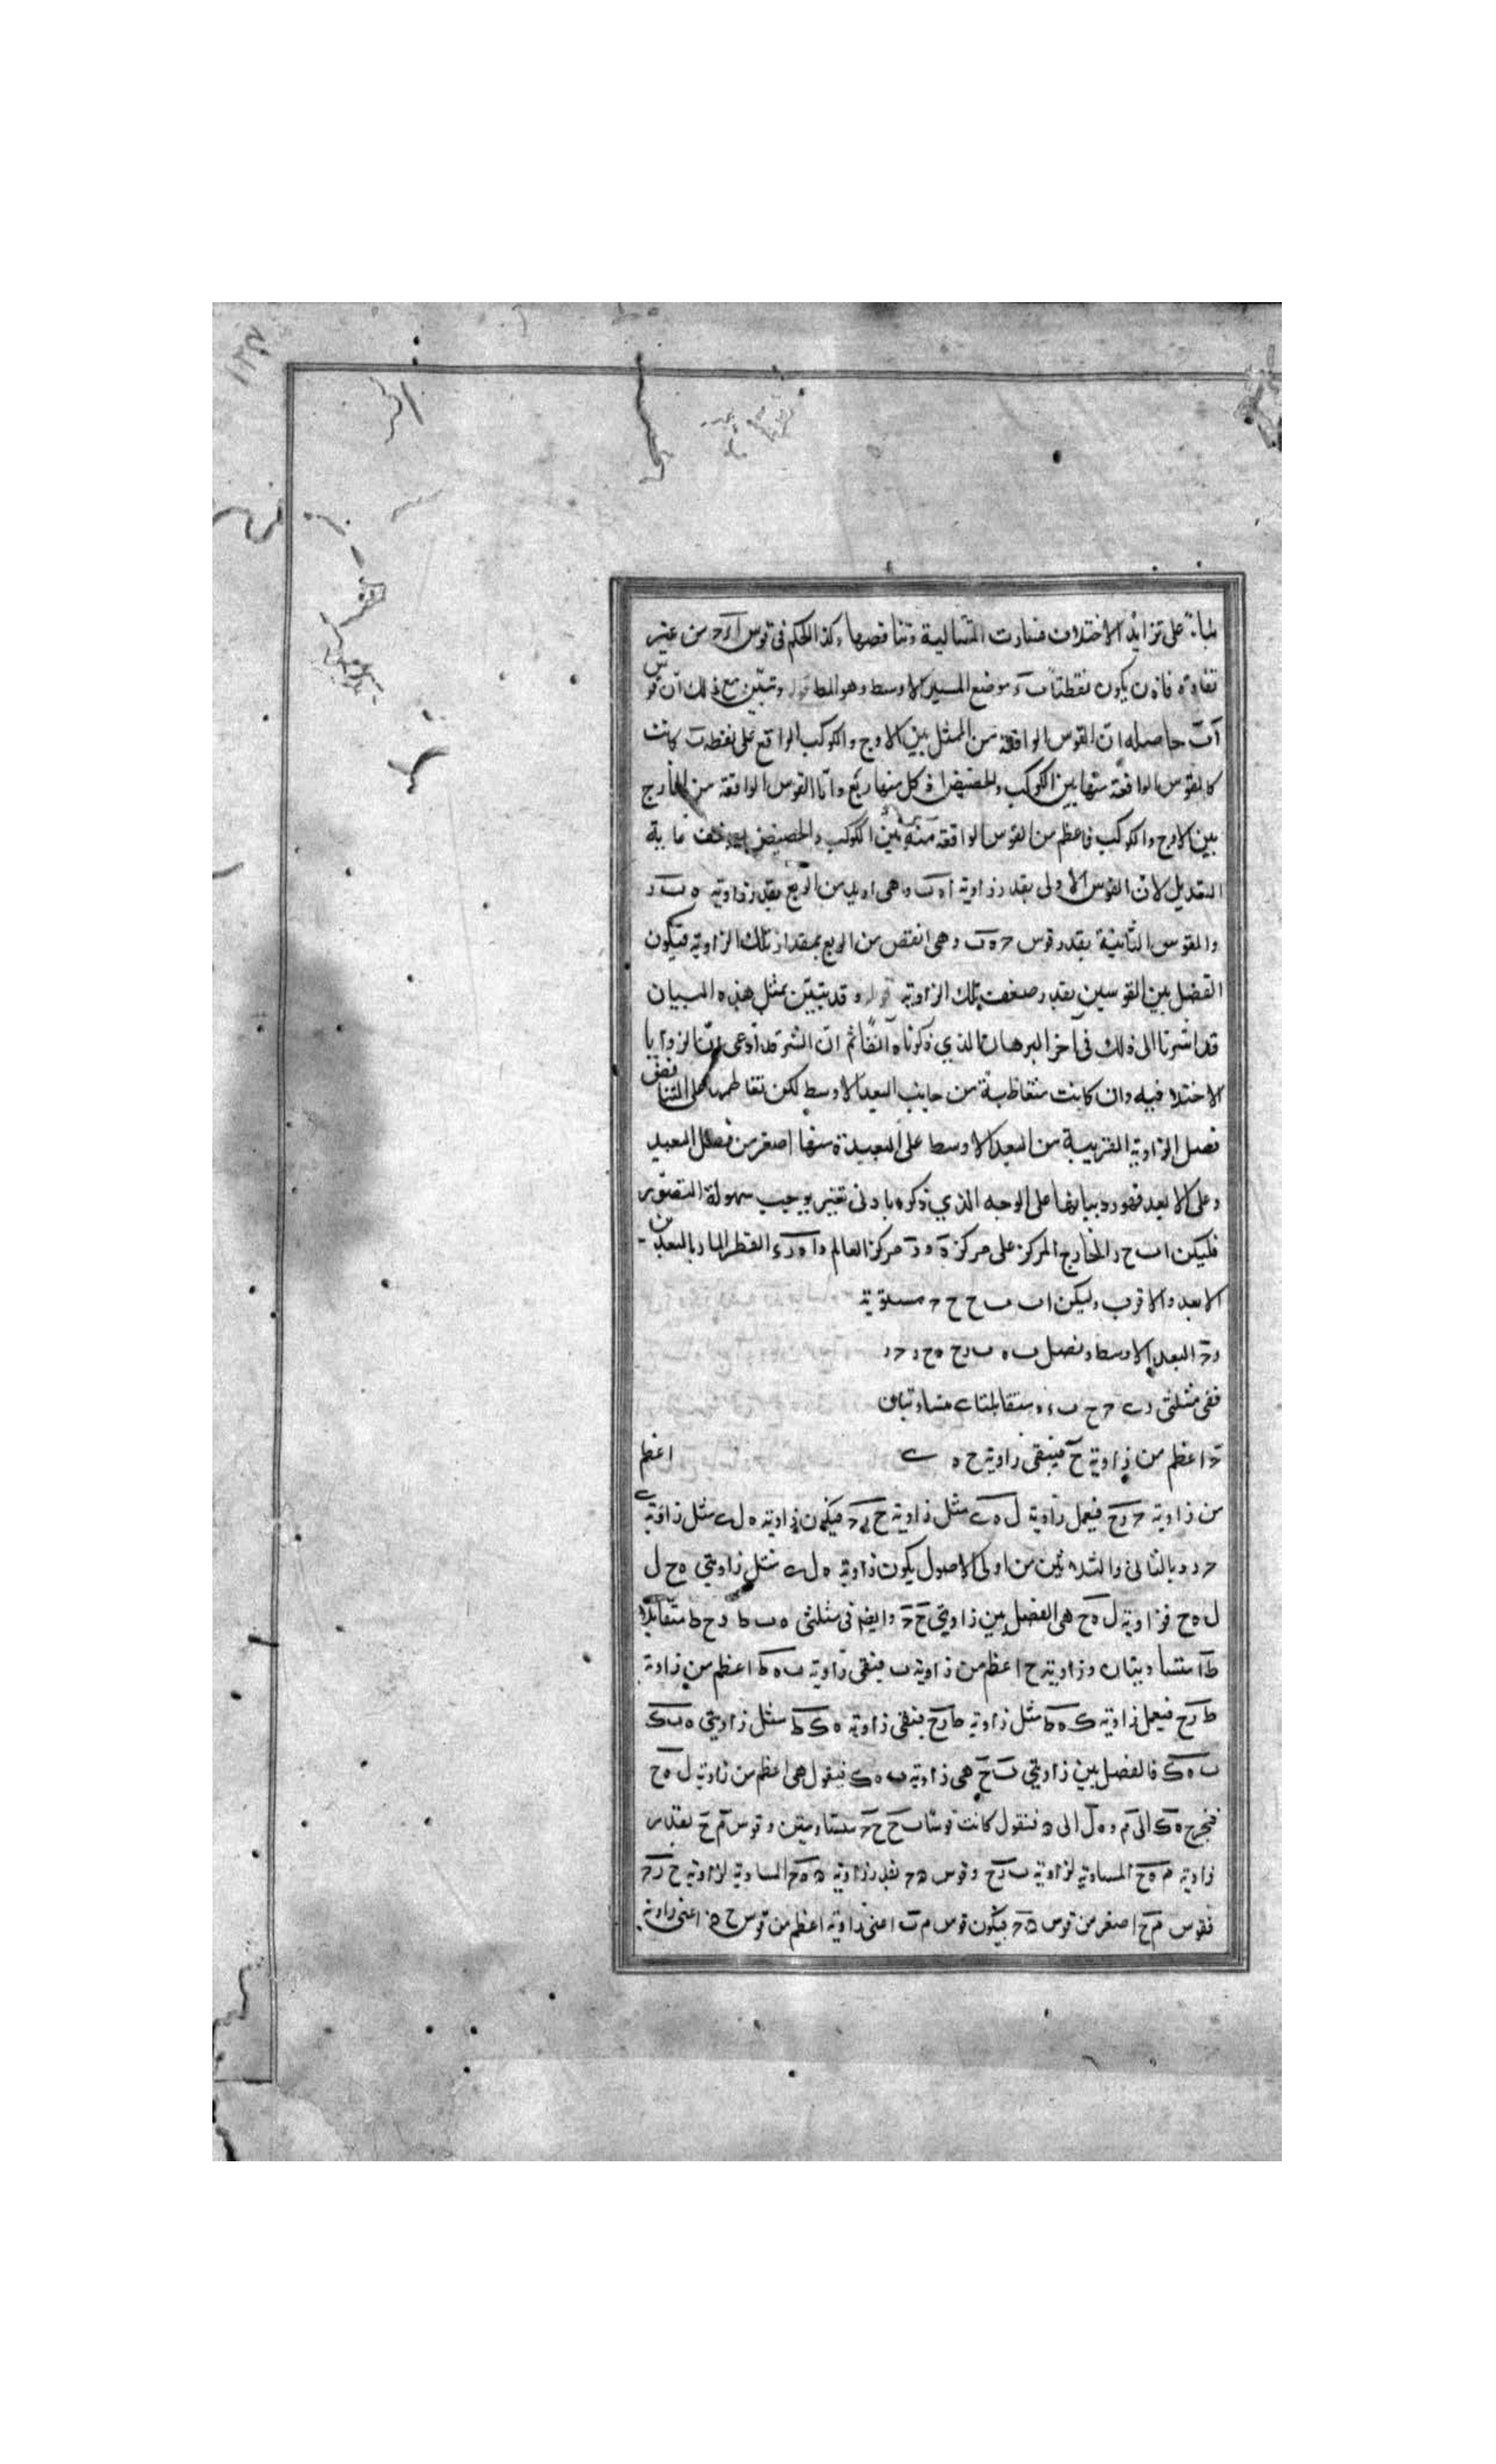 على تزايد الاختلاف صارت المتتالية وتناقصها وكذا الحكم فى قوس ا د ح من غير
تفاوت فاذن يكون نقطتا ب د موضع المسير الاوسط وهو المط وتبيّن مع ذلك انّ قوس
آب حاصله ان القوس الواقعة من الممثل بين الاوج والكوكب الواقع على نقطة ب كانت
كالقوس الواقعة منها بين الكوكب والحضيض اذ كل منها ربع وامّا القوس الواقعة من الخارج
بين الاوج والكوكب فاعظم من القوس الواقعة منه بين الكوكب والحضيض بضعف غاية
التعديل لان القوس الاولى بقدر زاوية ا ه ب وهى ازيد من الربع بقدر زاوية ه ب د
والقوس الثانية بقدر قوس ح ه ب وهى انقص من الربع بمقدار تلك الزاوية فيكون
الفضل بين القوسين بقدر ضعف تلك الزاوية وقد تبيّن بمثل هذه البيان
قد اشرنا الى ذلك فى آخر البرهان الذي ذكرناه آنفًا ثم ان الش قد ادعى ان الزوايا
الاختلافيه وان كانت متعاظمة من جانب البعد الاوسط لكن تعاظمها على التناقص
فضل الزاوية القريبة من البعد الاوسط على البعيدة منها اصغر من فضل البعيد
وعلى الابعد فنورد بيانها على الوجه الذي ذكره بادنى تغيير يوجب سهولة التصوير
فليكن ا ب ح د الخارج المركز على مركز ه و ز مركز العالم و ا ه ز ء القطر المار بالبعدين
الابعد والاقرب وليكن ا ب ب ح ح ح متساوية
و ح البعد الاوسط ونصل ب ه ب ر ح ه ح ر ح ر
ففى مثلثى متقابلتا ى متساويتان
ح اعظم من زاوية ح فيبقى زاوية ح ه ى اعظم
من زاوية ح ر ح فيعمل زاوية ل ه ى مثل زاوية ح ر ح فيكون زاوية ه ل ى مثل زاوية
ح ر د وبالثانى والثلاثين من اولى الاصول يكون زاوية ه ل ى مثل زاويتى ه ح ل
ل ه ح فزاوية ل ه ح هى الفضل بين زاويتى ح ح وايضا فى مثلثى ه ب ط ر ح ط متقابلتا
ط متساويتان وزاوية ح اعظم من زاوية ب فيبقى زاوية ب ه ط اعظم من زاوية
ط ر ح فيعمل زاوية ك ه ط مثل زاوية ط ر ح فيبقى زاوية ه ك ط مثل زاويتى ه ب ك
ب ه ك فالفضل بين زاويتى ب ح هى زاوية ب ه ك فيقول هى اعظم من زاوية ل ه ح
فنخرج ه ك الى م و ه ل الى ن فنقول كانت قوسا ب ح ح ح متساويتين وقوس م ح بقدر
زاوية م ه ح المساوية لزاوية ب ر ح وقوس ن ح بقدر زاوية ن ه ح المساوية لزاوية ح ر ح
فقوس م ح اصغر من قوس ن ح فيكون قوس م ب اعنى زاوية اعظم من قوس ح ن اعنى زاوية